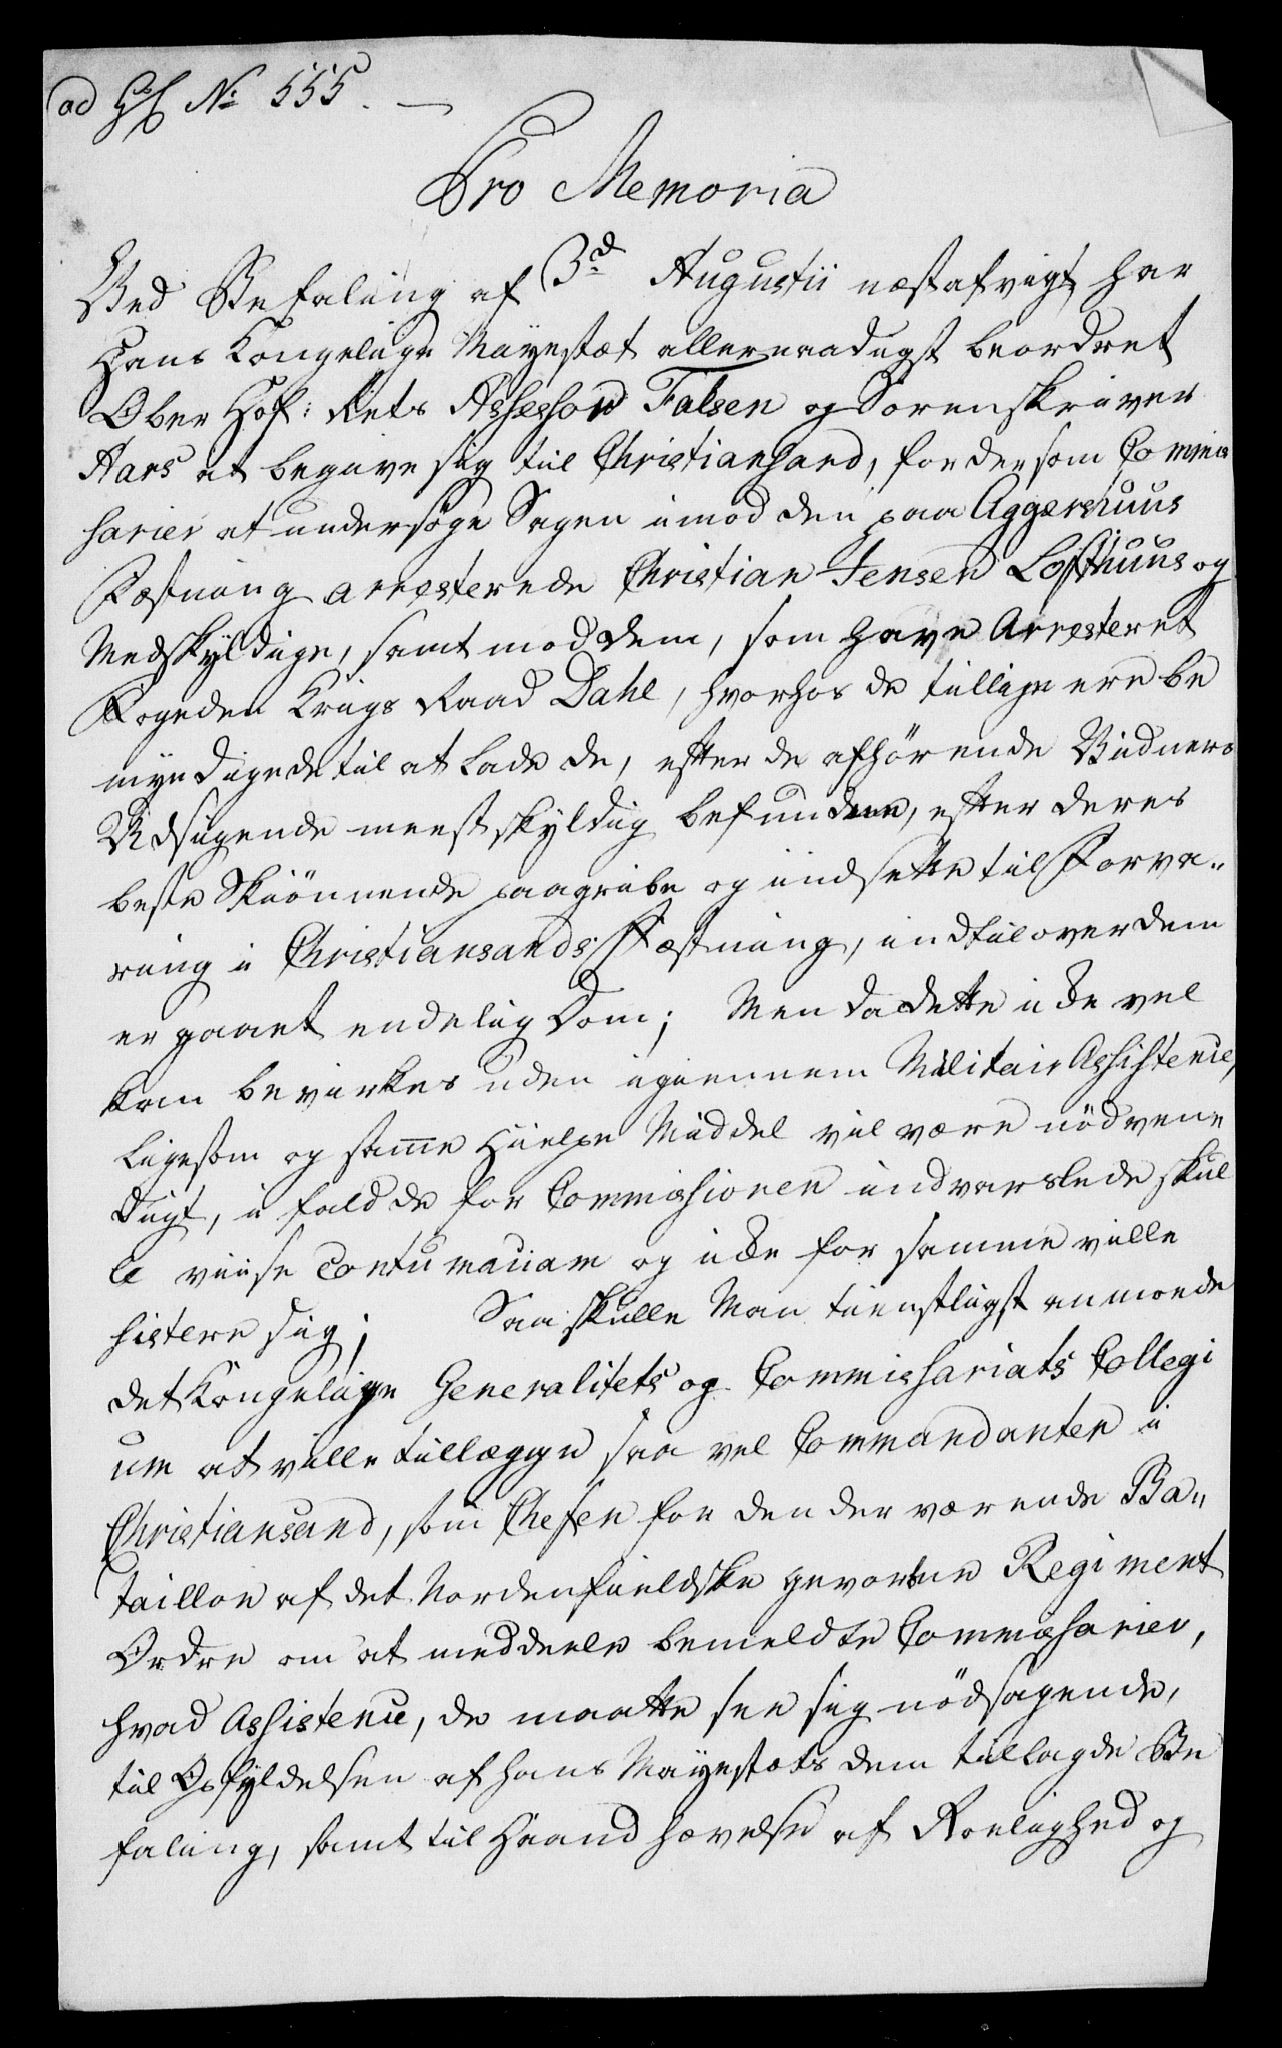 ad No 555.
Pro Memoria
Ved Befaling af 3d Augustii næstafvigt har
Hans Kongelige Mayestæt allernaadigst beordret
Ober Hof: Rets Assessor Falsen og Sorenskriver
Aars at begive sig til Christiansand, for der som Commis
sarier at undersøge Sagen imod den paa Aggershuus
Fæstning arresterede Christian Jensen Lofthuus og
Medskyldige, samt mod dem, som have Arresteret
Fogeden Krigs Raad Dahl, hvorhos de tillige ere be
myndigede til at lade de, efter de afhörende Vidners
Udsigende meest skyldig befundene, efter deres
beste Skiönnende paagribe og indsette til Forva„
ring i Christiansands Fæstning, indtil over dem
er gaaet endelig Dom; Men da dette icke vel
kan bevirkes uden igiennem Militair Assistence,
ligesom og samme Hielpe Middel vil være nödven
digt, i fald de for Commissionen indvarslede skul
le viise Contumaciam og icke for samme ville
sistere sig; Saa skulle Man tienstligst anmode
det Kongelige Generalitets og Commissariats Collegi
um at ville tillægge saa vel Commandanten i
Christiansand, som Chefen for den der værende Ba„
taillon af det Nordenfieldske gevorbne Regiment
Ordre om at meddeele bemeldte Commissarier,
hvad Assistence, de maatte see sig nödsagende,
til Opfyldelsen af hans Mayestæts dem tillagde Be
faling, samt til Haandhævelse af Roelighed og